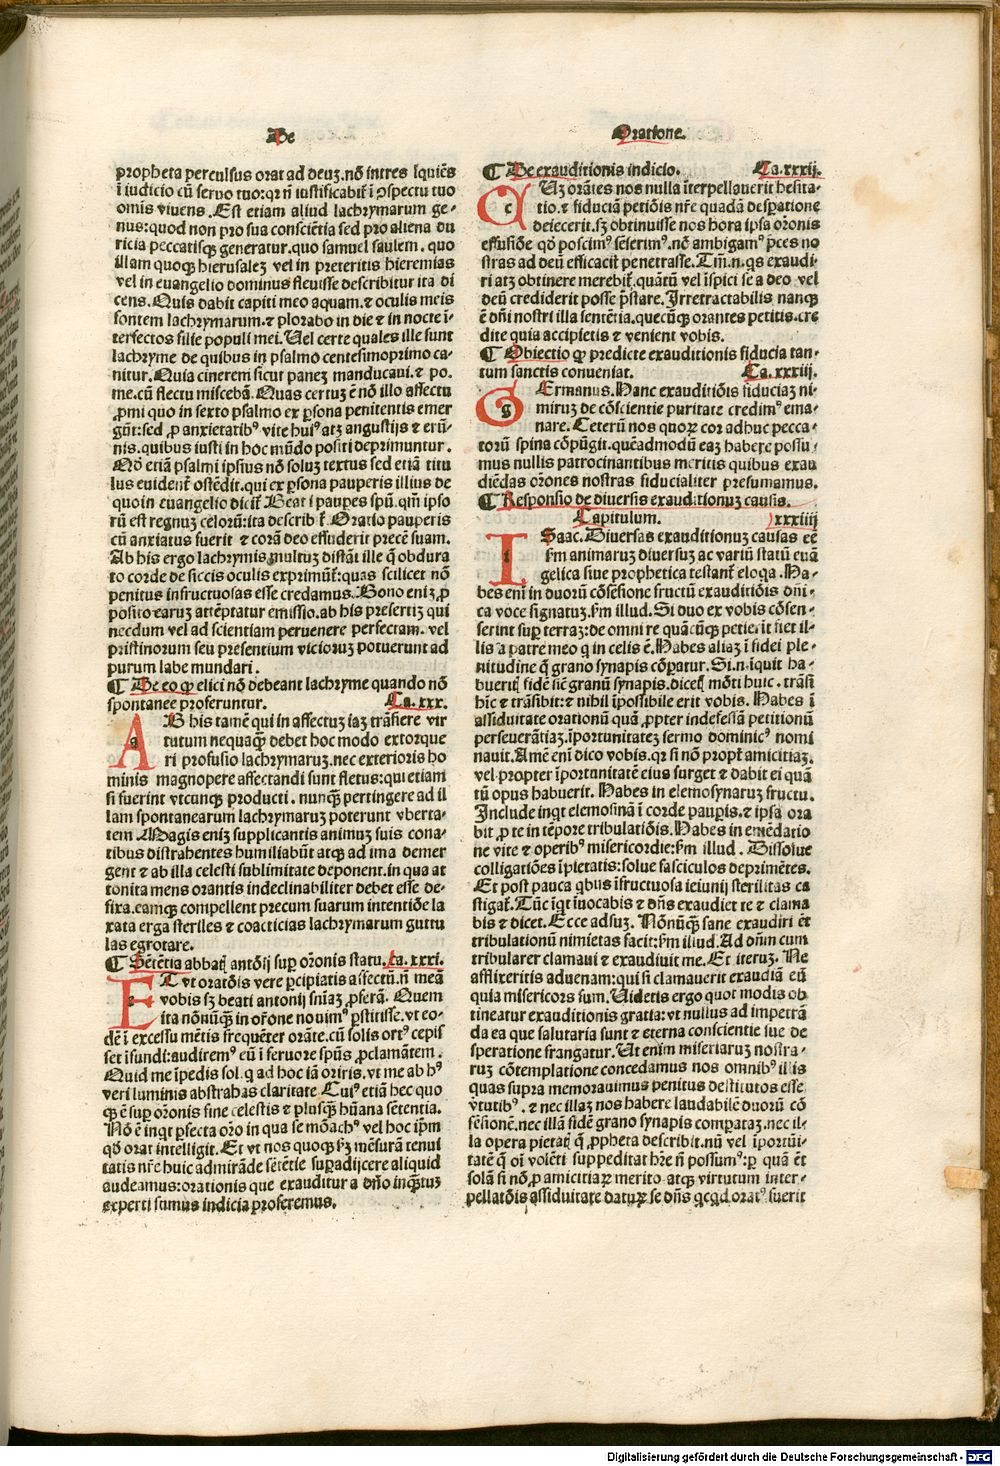 De
Oratione.
propheta perculsus orat ad deuꝫ. nō intres Iquiēs
ī iudicio cū seruo tuo: qꝛ ñ iustificabit̄ ī ꝯspectu tuo
omīs viuens. Est etiam aliud lachrymarum ge⸗
nus: quod non pro sua consciētia sed pro aliena du
ricia peccatisqꝫ generatur. quo samuel saulem. quo
illam quoqꝫ hierusaleꝫ vel in preteritis hieremias
vel in euangelio dominus fleuisse describitur ita di
cens. Quis dabit capiti meo aquam. ⁊ oculis meis
fontem lachrymarum. ⁊ plorabo in die ⁊ in nocte ī⸗
terfectos filie populi mei. Uel certe quales ille sunt
lachryme de quibus in psalmo centesimoprimo ca⸗
nitur. Quia cinerem sicut paneꝫ manducaui. ⁊ po⸗
me. cū fletu miscebā. Quas certuꝫ ē nō illo affectu
ꝓmi quo in sexto psalmo ex ꝑsona penitentis emer
gūt: sed ꝓ anxietatibꝰ vite huiꝰ atqꝫ angustijs ⁊ erū⸗
nis. quibus iusti in hoc mūdo positi deprimuntur.
Nō etiā psalmi ipsius nō soluꝫ textus sed etiā titu
lus euident̄ ostēdit. qui ex ꝑsona pauperis illius de
quo in euangelio dicit̄ Beati paupes spū. qm̄ ipso
rū est regnuꝫ celorū: ita describit̄ Oratio pauperis
cū anxiatus fuerit ⁊ corā deo effuderit precē suam.
Ab his ergo lachrymis multuꝫ distāt ille q̄ obdura
to corde de siccis oculis exprimūt̄: quas scilicet nō
penitus infructuosas esse credamus. Bono eniꝫ ꝓ
posito earuꝫ attēptatur emissio. ab his presertiꝫ qui
necdum vel ad scientiam peruenere perfectam. vel
pristinorum seu presentium vicioruꝫ potuerunt ad
purum labe mundari.
¶ De eo ꝙ elici nō debeant lachryme quando nō
spontanee proferuntur. Ca. xxx.
AB his tamē qui in affectuꝫ iaꝫ trāsiere vir
tutum nequaqꝫ̄ debet hoc modo extorque
ri profusio lachrymaruꝫ. nec exterioris ho
minis magnopere affectandi sunt fletus: qui etiam
si fuerint vtcunqꝫ producti. nunqꝫ̄ pertingere ad il
lam spontanearum lachrymaruꝫ poterunt vberta⸗
tem Magis eniꝫ supplicantis animuꝫ suis cona⸗
tibus distrahentes humiliabūt atqꝫ ad ima demer
gent ⁊ ab illa celesti sublimitate deponent. in qua at
tonita mens orantis indeclinabiliter debet esse de⸗
fixa. eamqꝫ compellent precum suarum intentiōe la
xata erga steriles ⁊ coacticias lachrymarum guttu
las egrotare.
¶ Sētētia abbatꝭ antōij sup̄ oꝛonis statu. Ca. xxxi.
ET vt oratōis vere ꝑcipiatis affectū. ñ meā
vobis sꝫ beati antonij snīaꝫ ꝓferā. Quem
ita nōnūqꝫ̄ in orōne nouimꝰ ꝑstitisse. vt eo⸗
dē ī excessu mētis frequēter orāte. cū solis ortꝰ cepis
set īfundi: audiremꝰ eū ī feruore spūs ꝓclamātem.
Quid me īpedis sol. q ad hoc iā oriris. vt me ab hꝰ
veri luminis abstrahas claritate Cuiꝰ etiā hec quo
qꝫ ē sup̄ oꝛonis fine celestis ⁊ plusqꝫ̄ hūana sētentia.
Nō ē inqt ꝑfecta orō in qua se mōachꝰ vel hoc ip̄m
qd̄ orat intelligit. Et vt nos quoqꝫ ẜꝫ mēsurā tenui
tatis nr̄e huic admirāde sētētie supadijcere aliquid
audeamus: orationis que exauditur a dn̄o inqꝫ̄tuꝫ
experti sumus indicia proferemus.
¶ De exauditionis indicio. Ca. xxxij.
CUꝫ orātes nos nulla īterpellauerit hesita⸗
tio. ⁊ fiduciā petiōis nr̄e quadā despatione
deiecerit. sꝫ obtinuisse nos hora ipsa oꝛonis
effusiōe qd̄ poscimꝰ sēserimꝰ. nō ambigamꝰ p̄ces no
stras ad deū efficacit̄ penetrasse. Tm̄. n. qs exaudi⸗
ri atqꝫ obtinere merebit̄. quātū vel īspici se a deo vel
deū crediderit posse p̄stare. Irretractabilis nanqꝫ
ē dn̄i nostri illa sentētia. quecūqꝫ orantes petitis. cre
dite quia accipietis ⁊ venient vobis.
¶ Obiectio ꝙ predicte exauditionis fiducia tan⸗
tum sanctis conueniat. Ca. xxxiij.
GErmanus. Hanc exauditiōis fiduciaꝫ ni⸗
miruꝫ de cōscientie puritate credimꝰ ema⸗
nare. Ceterū nos quoꝝ cor adhuc pecca⸗
torū spina cōpūgit. quēadmodū eaꝫ habere possu⸗
mus nullis patrocinantibus meritis quibus exau
diēdas orōnes nostras fiducialiter presumamus.
¶ Responsio de diuersis exauditionuꝫ causis.
Capitulum. xxxiiij
ISaac. Diuersas exauditionuꝫ causas eē
ẜm animaruꝫ diuersuꝫ ac variū statū euā
gelica siue prophetica testant̄ eloqa. Ha⸗
bes eni̅ in duorū cōsēsione fructū exauditiōis dn̄i⸗
ca voce signatuꝫ. ẜm illud. Si duo ex vobis cōsen⸗
serint sup terraꝫ: de omni re quācūqꝫ petierīt fiet il⸗
lis a patre meo q in celis ē. Habes aliaꝫ ī fidei ple⸗
nitudine q̄ grano synapis cōpatur. Si. n. iquit ha⸗
buerit̄ fidē sic̄ granū synapis. dicetꝭ mōti huic. trāsi
hīc ⁊ trāsibit: ⁊ nihil īpossibile erit vobis. Habes ī
assiduitate orationū quā ꝓpter indefessā petitionū
perseuerātiaꝫ. īportunitateꝫ sermo dominicꝰ nomi
nauit. Amē eni̅ dico vobis. qꝛ si nō propt̄ amicitiaꝫ.
vel propter īportunitatē eius surget ⁊ dabit ei quā
tū opus habuerit. Habes in elemosynaruꝫ fructu.
Include inqt elemosinā ī corde paupis. ⁊ ipsa ora
bit ꝓ te in tēpore tribulatiōis. Habes in emēdatio
ne vite ⁊ operibꝰ misericordie: ẜm illud. Dissolue
colligatiōes īpietatis: solue fasciculos deprimētes.
Et post pauca qbus īfructuosa ieiunij sterilitas ca
stigat̄. Tūc iqt īuocabis ⁊ dn̄s exaudiet te ⁊ clama
bis ⁊ dicet. Ecce adsuꝫ. Nōnūqꝫ̄ sane exaudiri et̄
tribulationū nimietas facit: ẜm illud. Ad dn̄m cum
tribularer clamaui ⁊ exaudiuit me. Et iteruꝫ. Ne
afflixeritis aduenam: qui si clamauerit exaudiā eū
quia misericors sum. Uidetis ergo quot modis ob
tineatur exauditionis gratia: vt nullus ad impetrā
da ea que salutaria sunt ⁊ eterna conscientie sue de
speratione frangatur. Ut enīm miseriaruꝫ nostra⸗
ruꝫ cōtemplatione concedamus nos omnibꝰ illis
quas supra memorauimus penitus destitutos esse
ṽtutibꝰ. ⁊ nec illaꝫ nos habere laudabilē duorū cō
sēsionē. nec illam fidē grano synapis comparataꝫ. nec il⸗
la opera pietatꝭ q̄ ꝓpheta describit. nū vel īportūi⸗
tatē q̄ oī volēti suppeditat hr̄e ñ possumꝰ: ꝑ quā et̄
solā si nō ꝓ amicitiaꝝ merito atqꝫ virtutum inter⸗
pellatōis assiduitate datuꝝ se dn̄s qcqd oratꝰ fuerit